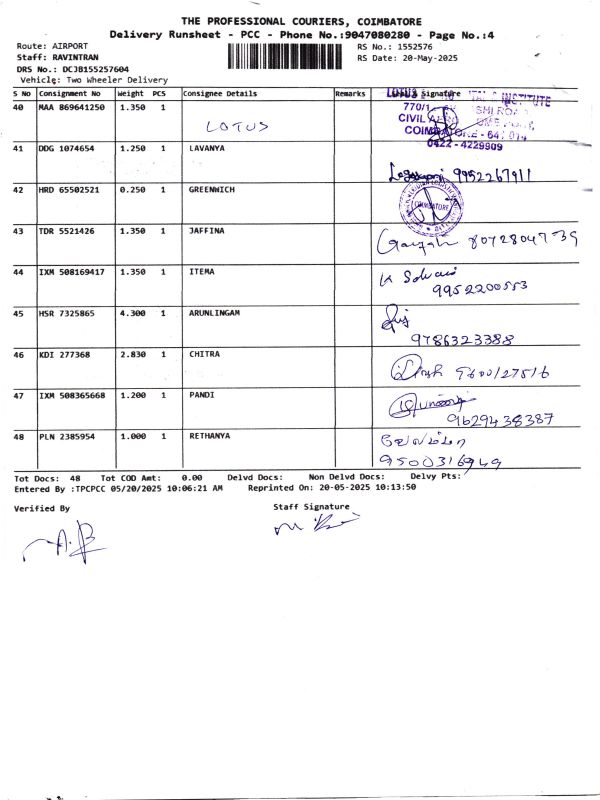 THE PROFESSIONAL COURIERS, COIMBATORE
Delivery Runsheet - PCC - Phone No.:9047080280 - Page No.:4
Route: AIRPORT RS No.: 1552576
Staff: RAVINTRAN RS Date: 20-May-2025
DRS No.: DCJB155257604
Vehicle: Two Wheeler Delivery
S No Consignment No Weight PCS Consignee Details Remarks Signature
40 MAA 869641250 1.350 1
LOTUS
LOTUS INSTITUTE
770/1
CIVIL
COIMBATORE - 641 014
0422 - 4229909
41 DDG 1074654 1.250 1 LAVANYA
9952267911
42 HRD 65502521 0.250 1 GREENWICH
COIMBATORE
43 TDR 5521426 1.350 1 JAFFINA
8072804739
44 IXM 508169417 1.350 1 ITEMA
K Selvaa
9952200553
45 HSR 7325865 4.300 1 ARUNLINGAM
9786323388
46 KDI 277368 2.830 1 CHITRA
9600127516
47 IXM 508365668 1.200 1 PANDI
9629438387
48 PLN 2385954 1.000 1 RETHANYA
9500316949
Tot Docs: 48 Tot COD Amt: 0.00 Delvd Docs: Non Delvd Docs: Delvy Pts:
Entered By :TPCPCC 05/20/2025 10:06:21 AM Reprinted On: 20-05-2025 10:13:50
Verified By Staff Signature